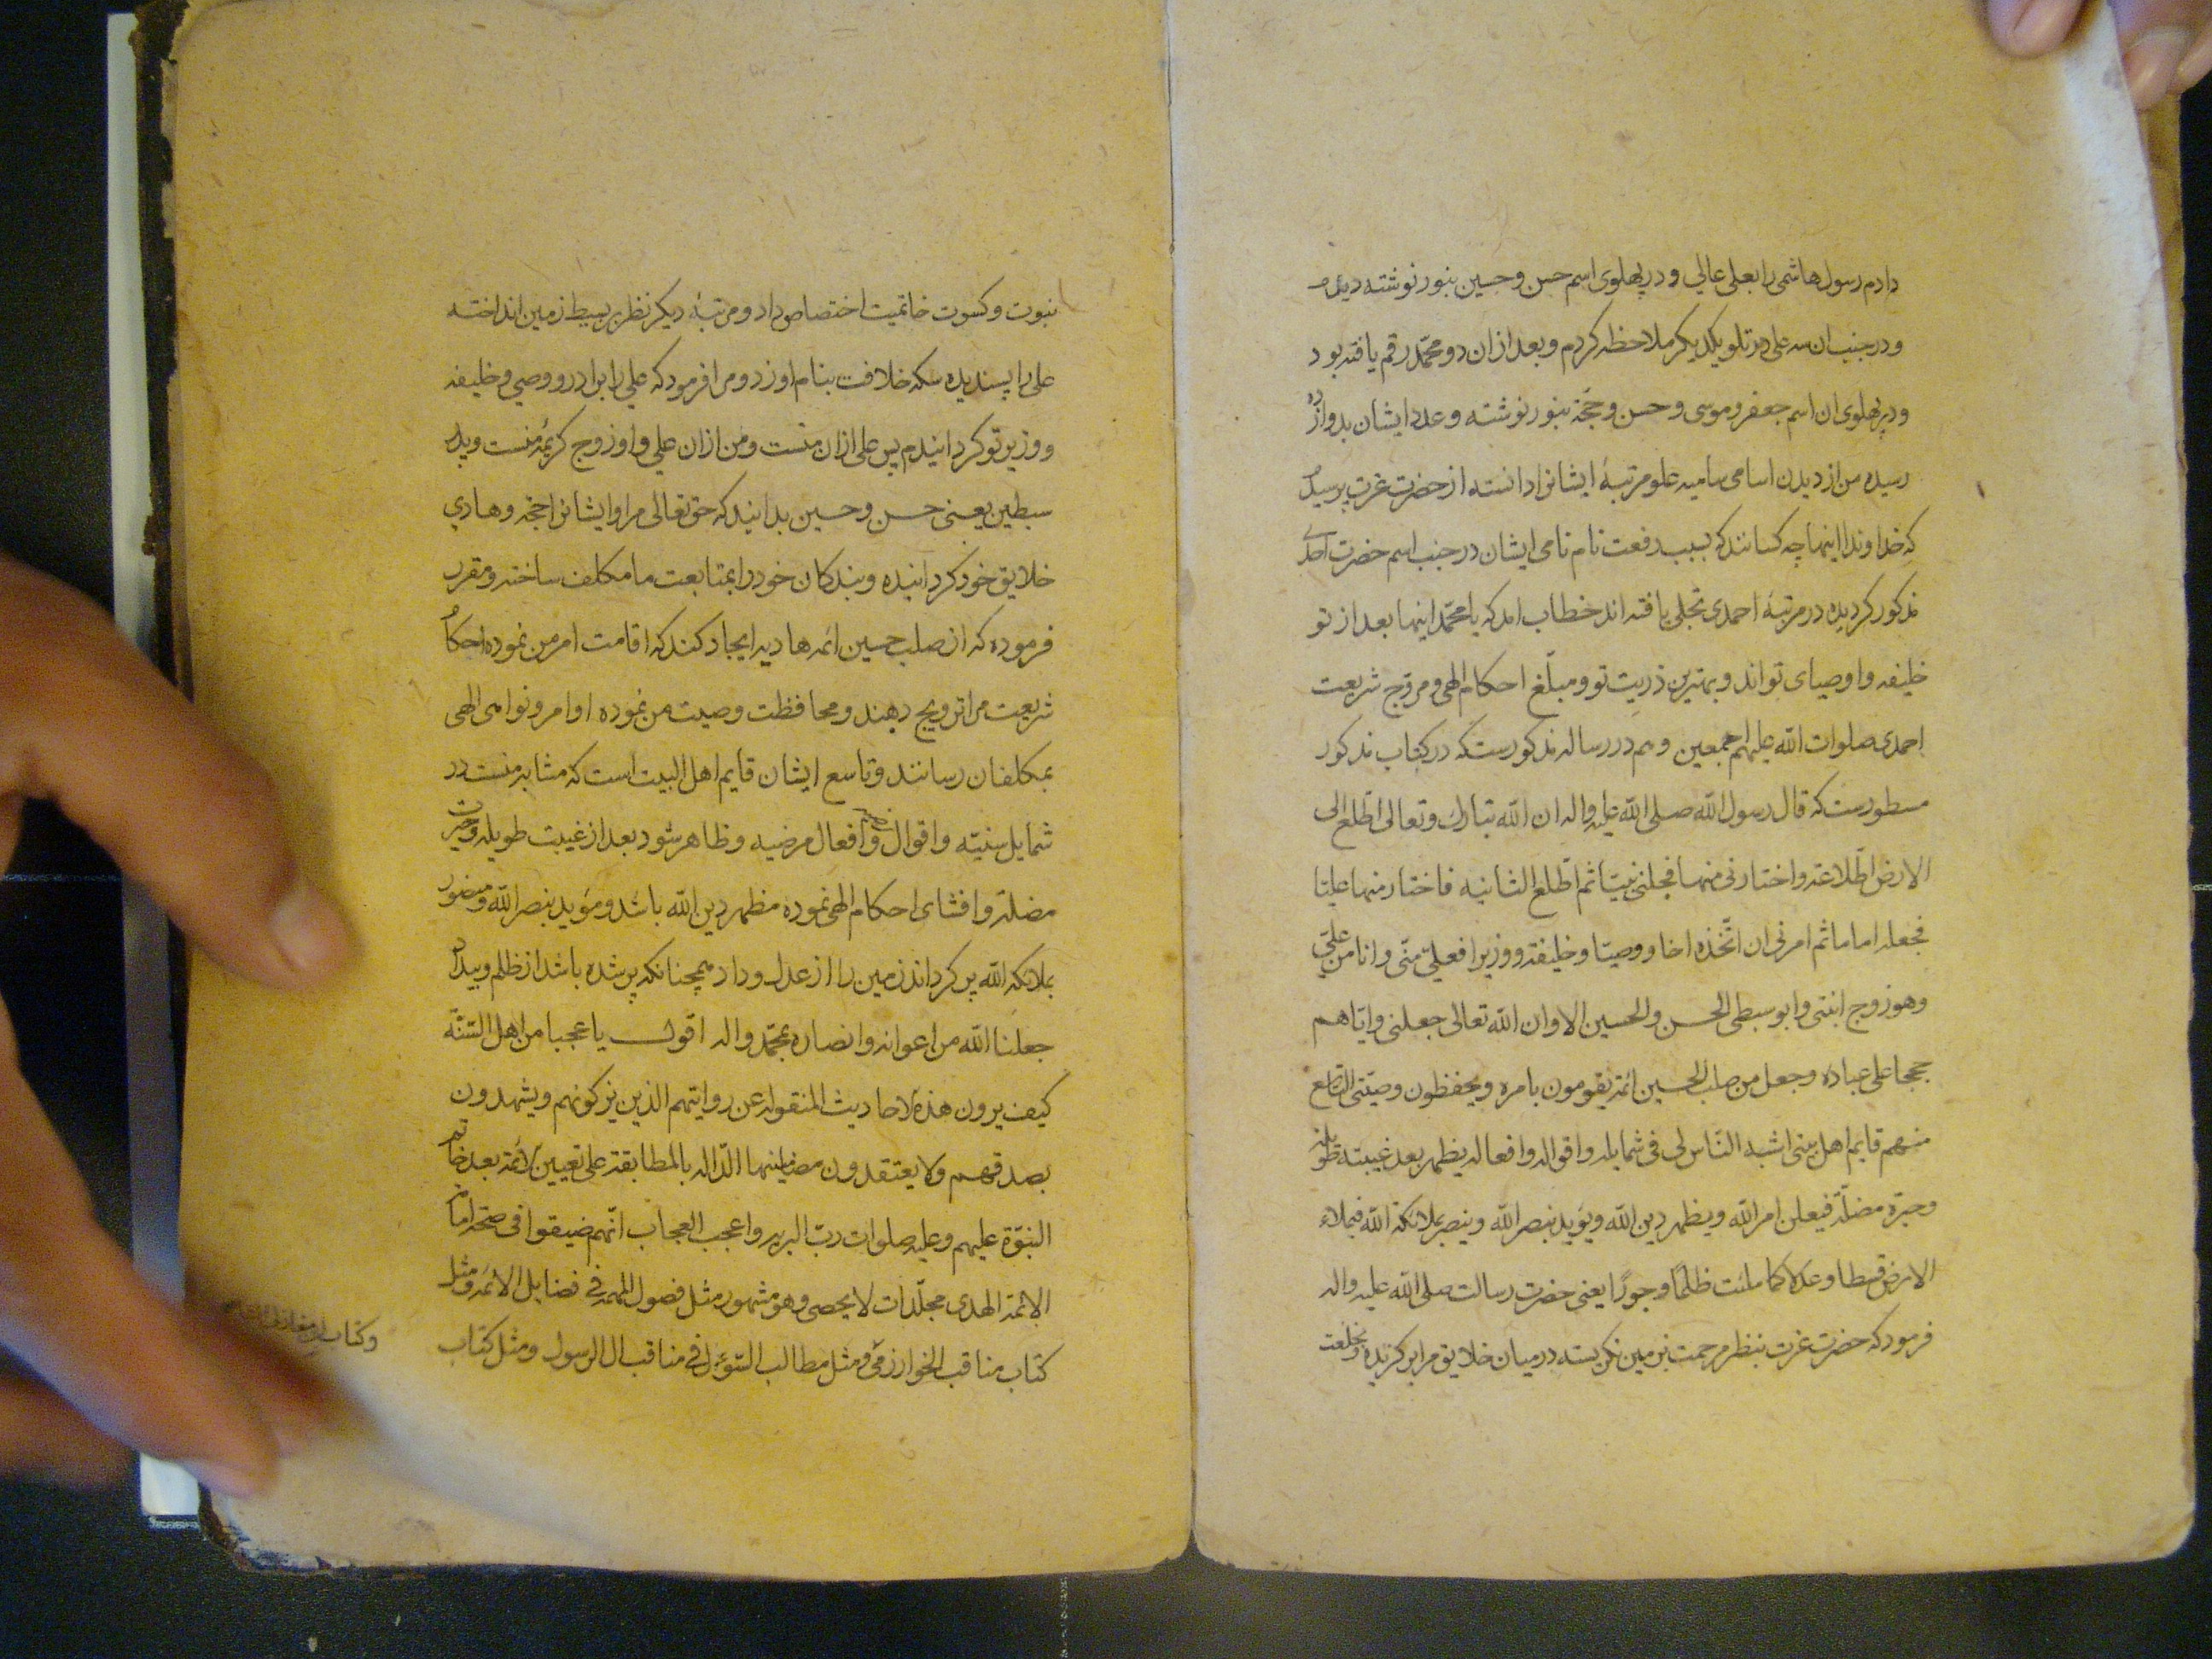 دادم رسول هاشمی را بعلی عالی و در پهلوی اسم حسن و حسین بنور نوشته دیدم
و در جنب ان سه علی در تلو یکدیکر ملاحظه کردم و بعد از ان دو محمّد رقم یافته بود
و در پهلوی ان اسم جعفر و موسی و حسن و حجّة بنور نوشته و عدد ایشان بدوازده
رسیده من از دیدن اسامی سامیه علو مرتبهٔ ایشانرا دانسته از حضرت عزت پرسیدم
که خداوندا اینها چه کسانند که بسبب رفعت نام نامی ایشان در جنب اسم حضرت احدی
مذکور کردیده در مرتبهٔ احمدی تجلی یافته اند خطاب امد که یا محمّد اینها بعد از تو
خلیفه و اوصیای تو اند و بهترین ذریت تو و مبلّغ احکام الهی و مروّج شریعت
احمدی صلوات الله علیهم اجمعین و هم در رساله مذکورست که در کتاب مذکور
مسطورست که قال رسول الله صلی الله علیه واله ان الله تبارک وتعالی اطّلع الی
الارض اطّلاعة واختارنی منها فجعلنی نبیّا ثم اطّلع الثانیه فاختار منها علیّا
فجعله اماما ثم امرنی ان اتّخذه اخا ووصیّا وخلیفة ووزیرا فعلیّ منّی وانا من علیّ
وهو زوج ابنتی وابو سبطی الحسن والحسین الا وان الله تعالی جعلنی وایّاهم
حججا علی عباده وجعل من صلب الحسین ائمّة یقومون بامره ویحفظون وصیّتی التاسع
منهم قایم اهل بیتی اشبه النّاس لی فی شمایله واقواله وافعاله یظهر بعد غیبته طویلة
وحیرة مضلّة فیعلن امر الله ویظهر دین الله ویؤید بنصر الله وینصر بملائکة الله فیملاء
الارض قسطا وعدلا کما ملئت ظلمًا وجورًا یعنی حضرت رسالت صلی الله علیه واله
فرمود که حضرت عزت بنظر مرحمت بزمین نکریسته در میان خلایق مرا برکزیده و بخلعت
نبوت و کسوت خاتمیت اختصاص داد و مرتبهٔ دیکر نظر بر بسیط زمین انداخته
علی را پسندیده سکه خلافت بنام او زد و مرا فرمود که علی را برادر و وصی و خلیفه
و وزیر تو کردانیدم پس علی ازان منست و من ازان علی و او زوج کریمهٔ منست و پدر
سبطین یعنی حسن و حسین بدانید که حق تعالی مرا و ایشانرا حجّة و هادی
خلایق خود کردانیده و بندکان خود را بمتابعت ما مکلف ساخته و مقرر
فرموده که از صلب حسین ائمه هادیه ایجاد کند که اقامت امر من نموده احکام
شریعت مرا ترویج دهند و محافظت وصیت من نموده اوامر و نواهی الهی
بمکلفان رسانند و تاسع ایشان قایم اهل البیت است که مشابه منست در
شمایل سنیّه و اقوال و افعال مرضیه و ظاهر شود بعد از غیبت طویله و حیرت
مضلّه و افشای احکام الهی نموده مظهر دین الله باشد و مؤید بنصر الله و منصور
بملائکة الله پر کرداند زمین را از عدل و داد همچنانکه پر شده باشد از ظلم و بیداد
جعلنا الله من اعوانه وانصاره بمحمّد واله اقول یا عجبا من اهل السّنّه
کیف یرون هذه الاحادیث المنقوله عن روایتهم الذین یزکونهم ویشهدون
بصدقهم ولا یعتقدون مضامینها الدّاله بالمطابقة علی تعیین الائمّة بعد خاتم
النبوّة علیهم وعلیه صلوات ربّ البریه واعجب العجاب انّهم ضیقوا فی صحّة امامة
الائمّة الهدی مجلّدات لا یحصی وهو مشهور مثل فصول المهمّه فی فضایل الائمّه ومثل
کتاب مناقب الخوارزمی ومثل مطالب السّؤل فی مناقب ال الرسول ومثل کتاب
وکتاب